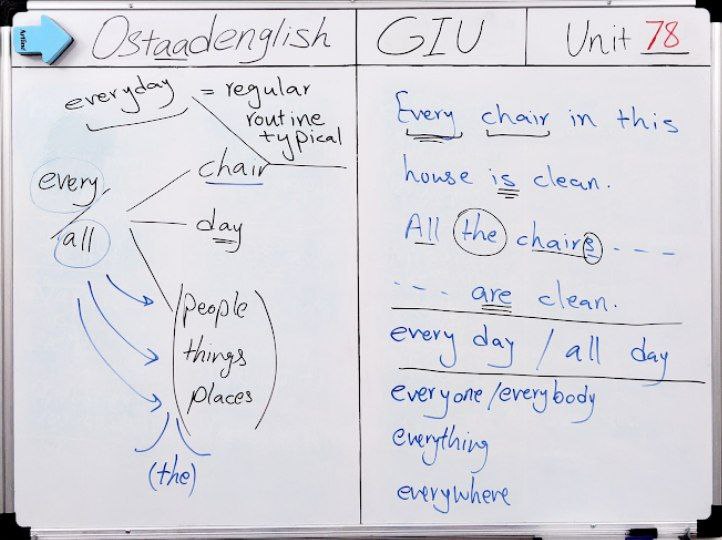 Artline
Ostaadenglish
GIU
Unit 78
everyday = regular
routine
typical
every
all
chair
day
people
things
places
(the)
Every chair in this
house is clean.
All the chairs - - -
- - - are clean.
every day / all day
everyone/everybody
everything
everywhere